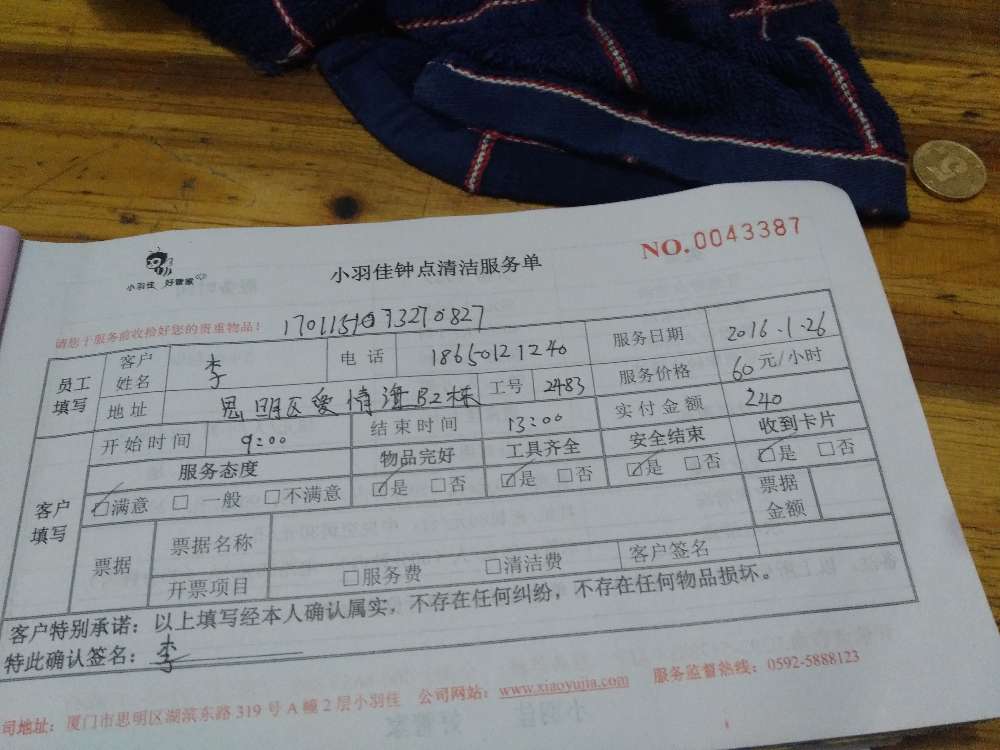 小羽佳 好管家
小羽佳钟点清洁服务单
NO.0043387
请您于服务前收拾好您的贵重物品！
员工填写 客户姓名 李 电话 18650121240 服务日期 2016.1.26
地址 思明区爱情海B2栋 工号 2483 服务价格 60元/小时
客户填写 开始时间 9:00 结束时间 13:00 实付金额 240
服务态度 物品完好 工具齐全 安全结束 收到卡片
☑满意 □一般 □不满意 ☑是 □否 ☑是 □否 ☑是 □否 ☑是 □否
票据 票据名称 票据金额
开票项目 □服务费 □清洁费 客户签名
客户特别承诺：以上填写经本人确认属实，不存在任何纠纷，不存在任何物品损坏。
特此确认签名：李
司地址：厦门市思明区湖滨东路319号A幢2层小羽佳 公司网站：www.xiaoyujia.com 服务监督热线：0592-5888123